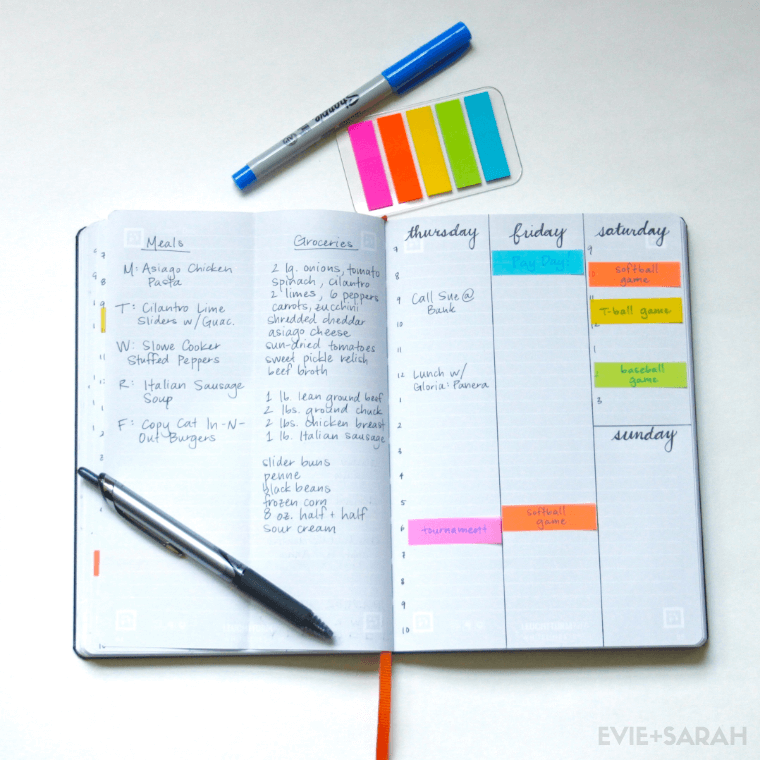 Sharpie
Meals
M: Asiago Chicken
Pasta
T: Cilantro Lime
Sliders w/Guac.
W: Slowe Cooker
Stuffed Peppers
R: Italian Sausage
Soup
F: Copy Cat In-N-
Out Burgers
Groceries
2 lg. onions, tomato
spinach, cilantro
2 limes, 6 peppers
carrots, zucchini
shredded cheddar
asiago cheese
sun-dried tomatoes
sweet pickle relish
beef broth
1 lb. lean ground beef
2 lbs. ground chuck
2 lbs. chicken breast
1 lb. Italian sausage
slider buns
penne
black beans
frozen corn
8 oz. half + half
sour cream
thursday
8
9
Call Sue @
Bank
10
11
12
Lunch w/
Gloria: Panera
1
2
3
4
5
6
tournament
7
8
9
10
friday
Pay Day!
softball
game
saturday
9
softball
game
11
T-ball game
12
1
2
baseball
game
3
sunday
EVIE+SARAH